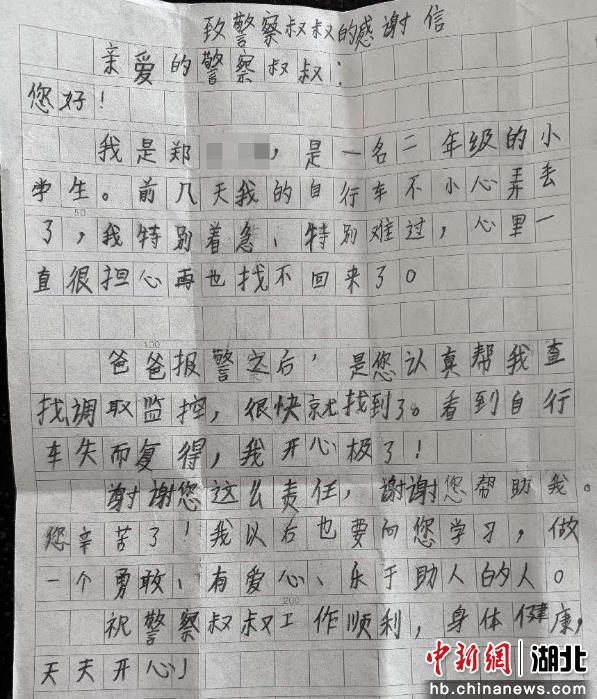 致警察叔叔的感谢信
亲爱的警察叔叔：
您好！
我是郑，是一名二年级的小
学生。前几天我的自行车不小心弄丢
50
了，我特别着急、特别难过，心里一
直很担心再也找不回来了。
100
爸爸报警之后，是您认真帮我查
找调取监控，很快就找到了。看到自行
车失而复得，我开心极了！
谢谢您这么责任，谢谢您帮助我。
您辛苦了！我以后也要向您学习，做
一个勇敢、有爱心、乐于助人的人。
200
祝警察叔叔工作顺利，身体健康，
天天开心！
中新网 湖北
hb.chinanews.com